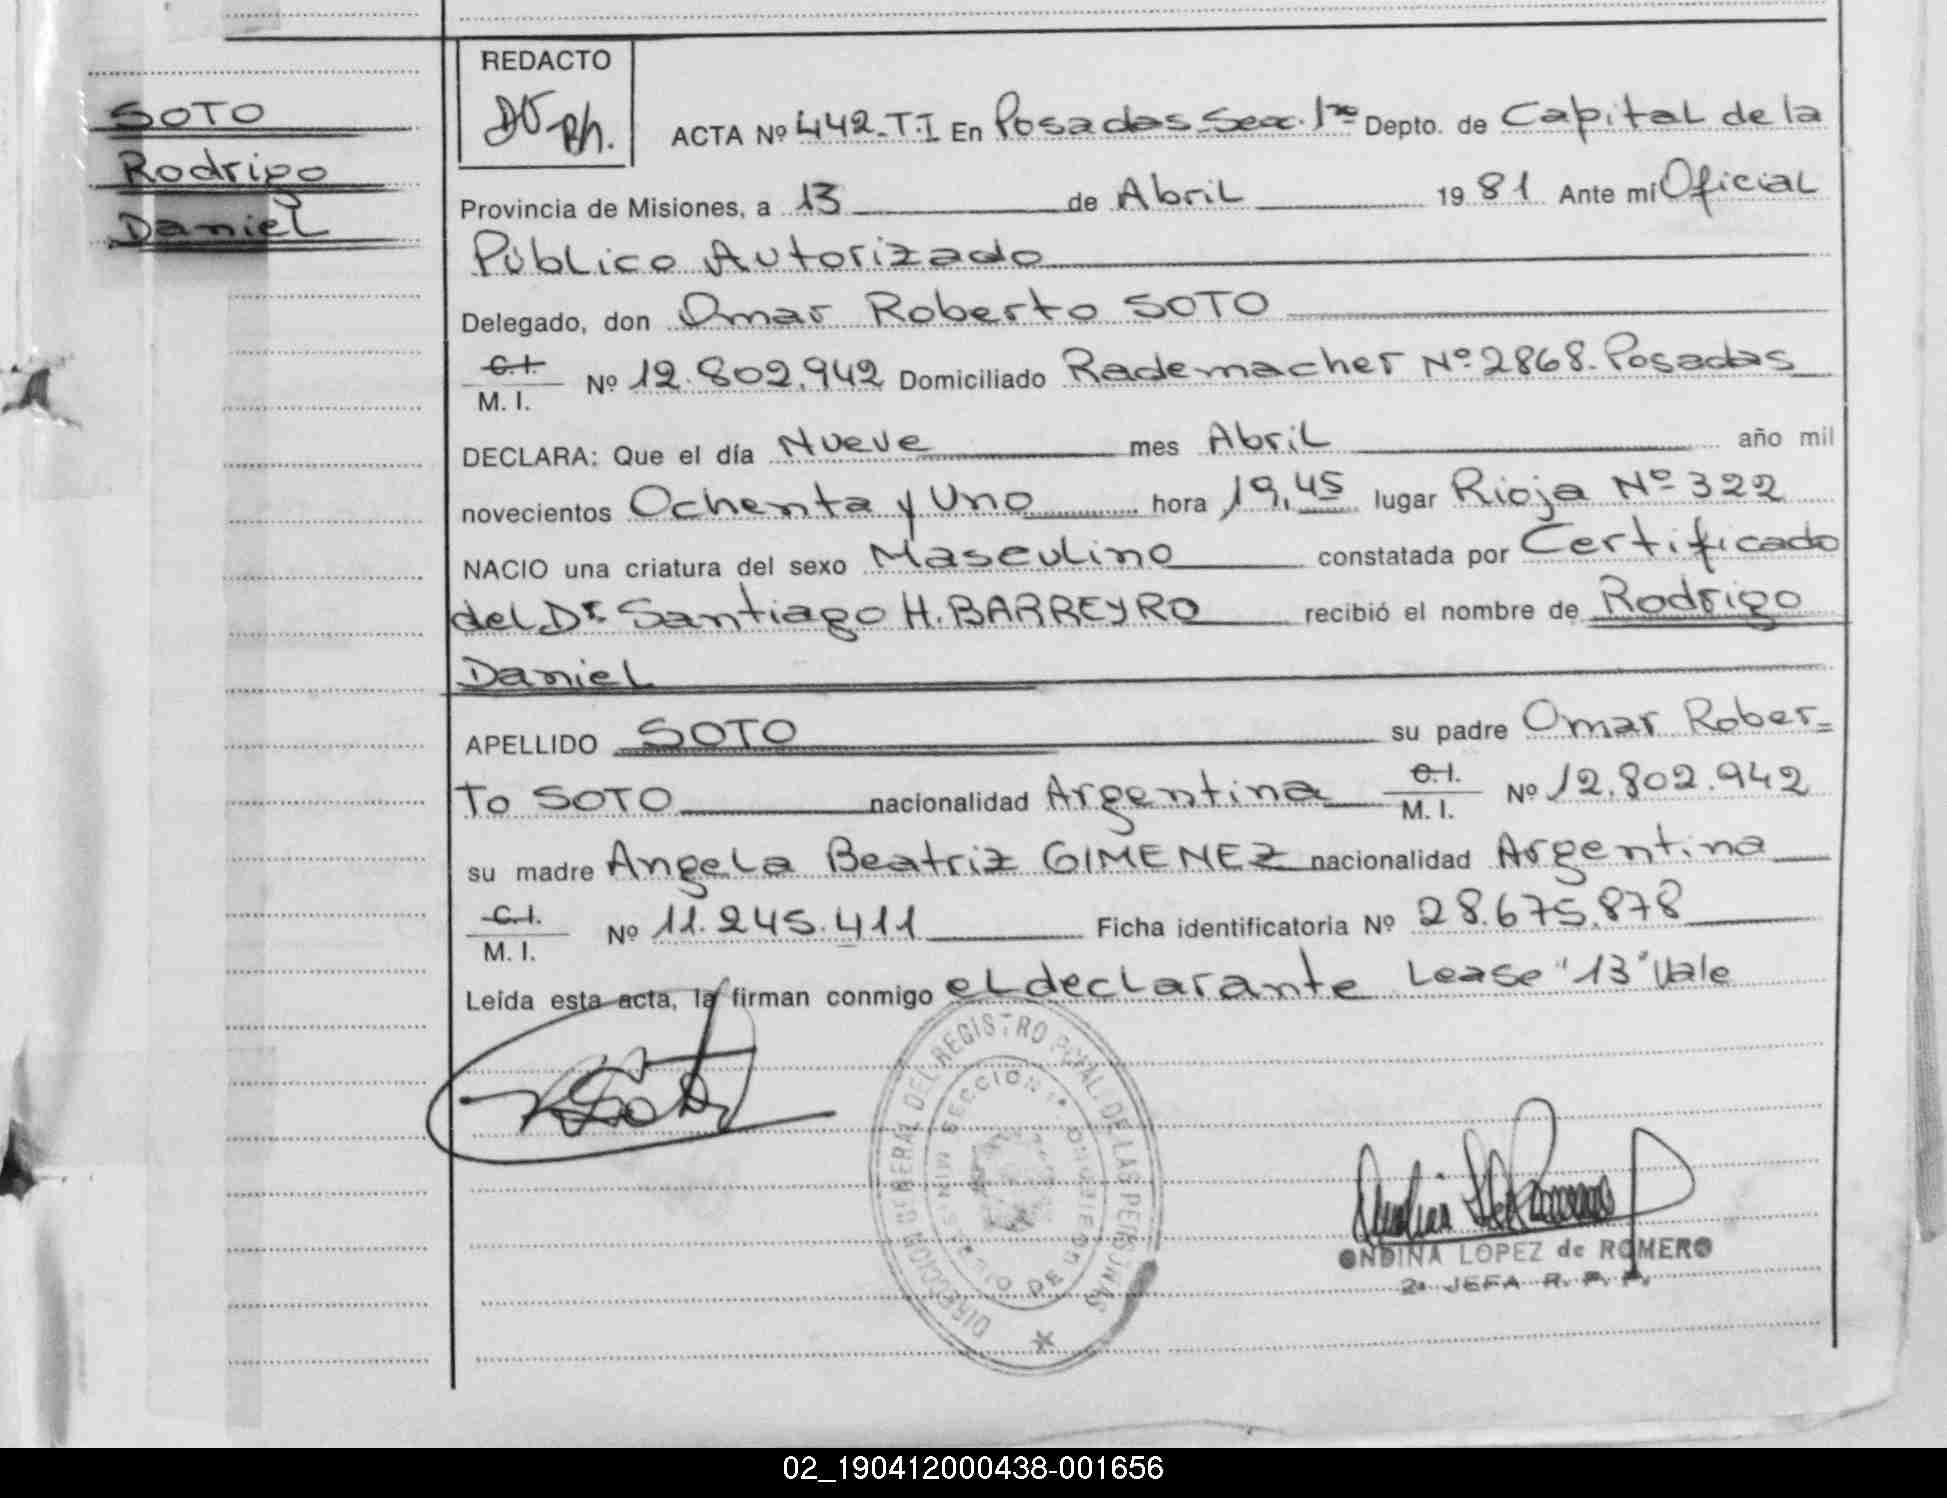 SOTO
Rodrigo
Daniel
REDACTO
ACTA Nº 442-T.I En Posadas Secc. 1ra Depto. de Capital de la
Provincia de Misiones, a 13 de Abril 1981 Ante mí Oficial
Público Autorizado
Delegado, don Omar Roberto SOTO
C.I.
M. I. Nº 12.802.942 Domiciliado Rademacher Nº 2868. Posadas
DECLARA: Que el día Nueve mes Abril año mil
novecientos Ochenta y Uno hora 19,45 lugar Rioja Nº 322
NACIO una criatura del sexo Masculino constatada por Certificado
del Dr. Santiago H. BARREYRO recibió el nombre de Rodrigo
Daniel
APELLIDO SOTO su padre Omar Rober=
To SOTO nacionalidad Argentina C.I. M. I. Nº 12.802.942
su madre Angela Beatriz GIMENEZ nacionalidad Argentina
C.I.
M. I. Nº 11.245.411 Ficha identificatoria Nº 28.675.878
Leída esta acta, la firman conmigo el declarante Lease "13" Vale
DIRECCION GENERAL DEL REGISTRO PCIAL. DE LAS PERSONAS
SECCION 1ª
MINISTERIO DE GOBIERNO
ONDINA LOPEZ de ROMERO
2ª JEFA R. P. P.
02_190412000438-001656